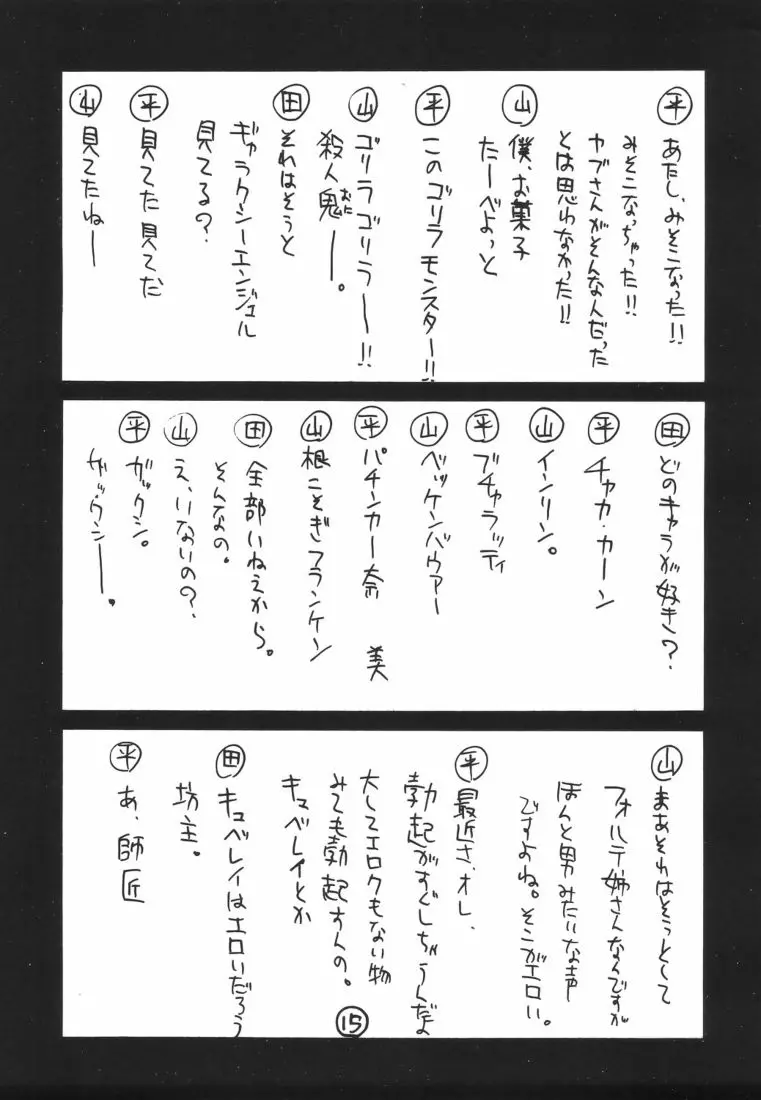 平 あたし、みそこなった!!
みそこなっちゃった!!
ヤブさんがそんなんだった
とは思わなかった!!
山 僕、お菓子
たーべよっと
平 このゴリラモンスター!!
山 ゴリラゴリラー!!
殺人鬼ー。
おに
田 それはそうと
ギャラクシーエンジェル
見てる?
平 見てた見てた
山 見てたねー
田 どのキャラが好き?
平 チャカ・カーン
山 インリン。
平 ブチャラッティ
山 ベッケンバウアー
平 パチンカー奈美
山 根こそぎフランケン
田 全部いねえから。
そんなの。
山 え、いないの?
平 ガックシ。
ガックシー。
山 まあそれはそうとして
フォルテ姉さんなんですが
ほんと男みたいな声
ですよね。そこがエロい。
平 最近さ、オレ、
勃起がすぐしちゃうんだよ
大してエロクもない物
みても勃起すんの。
キュベレイとか
田 キュベレイはエロいだろう
坊主。
平 あ、師匠
15